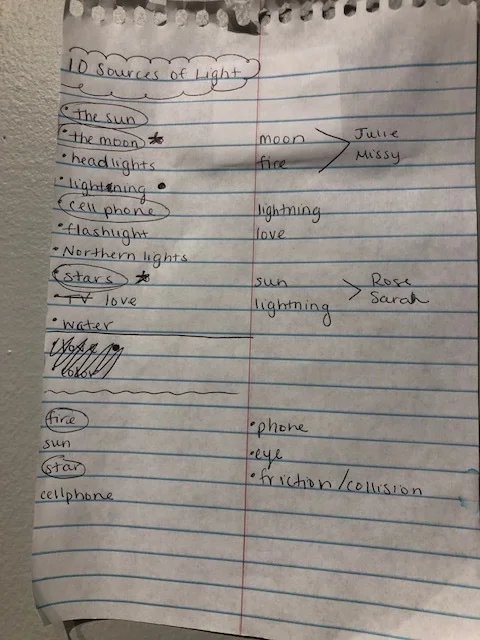 10 Sources of Light
• the sun
• the moon
• headlights
• lightning
• cell phone
• flashlight
• Northern lights
• stars
• TV love
• water
fire
sun
star
cellphone
moon
fire
Julie
Missy
lightning
love
sun
lightning
Rose
Sarah
• phone
• eye
• friction/collision